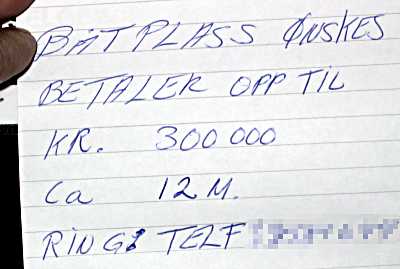 BÅTPLASS ØNSKES
BETALER OPP TIL
KR. 300 000
Ca 12 M.
RING TELF